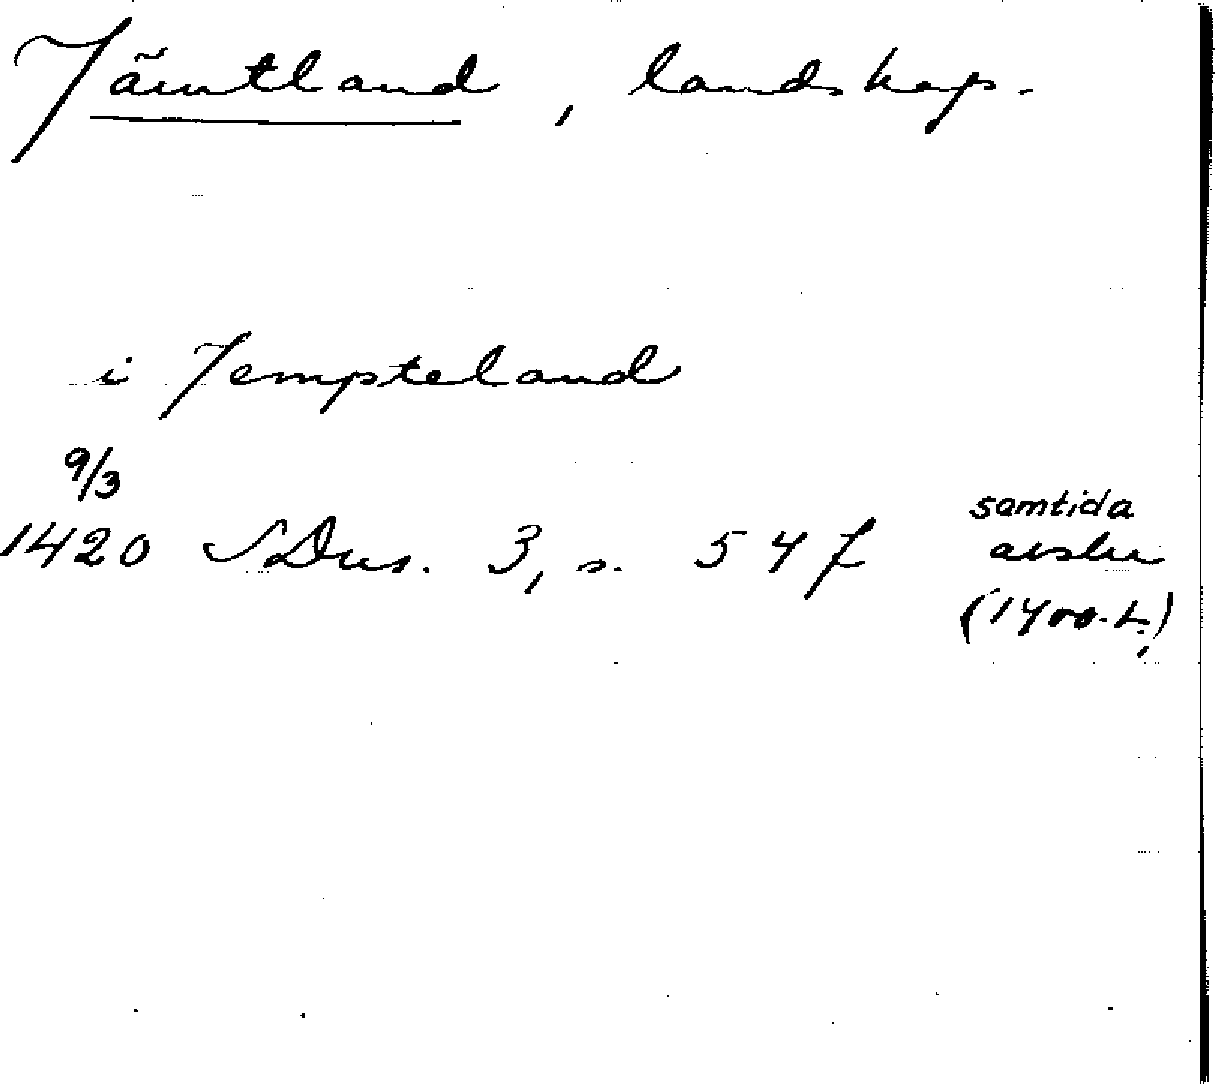 Jämtland, landskap.
i Jempteland
9/3
1420 SDns. 3, s. 54 f
samtida
avskr
(1400-t.)